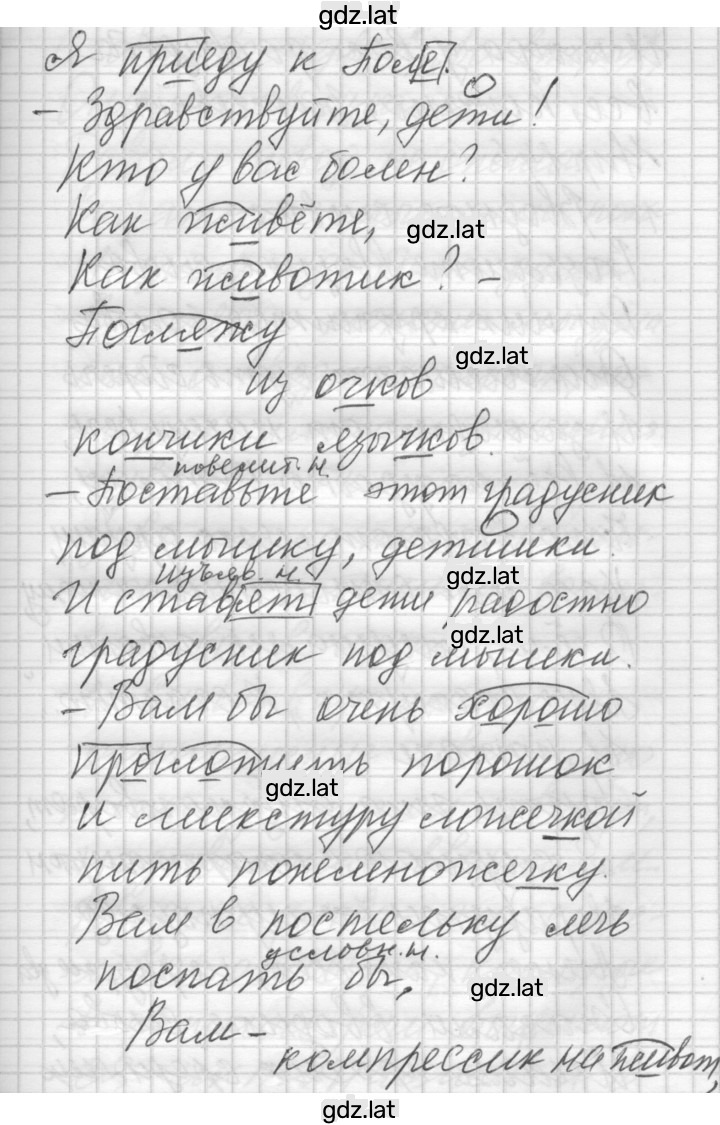 gdz.lat
Я приеду к Поле.
- Здравствуйте, дети!
Кто у вас болен?
Как живёте, gdz.lat
Как животик? -
Погляжу
gdz.lat
из очков
кончики язычков.
повелит. н.
- Поставьте этот градусник
под мышку, детишки.
изъяв. н. gdz.lat
И ставят дети радостно
gdz.lat
градусник под мышки.
- Вам бы очень хорошо
проглотить порошок
gdz.lat
и микстуру ложечкой
пить понемножечку.
Вам в постельку лечь
условн. н.
поспать бы, gdz.lat
Вам -
компрессик на живот,
gdz.lat